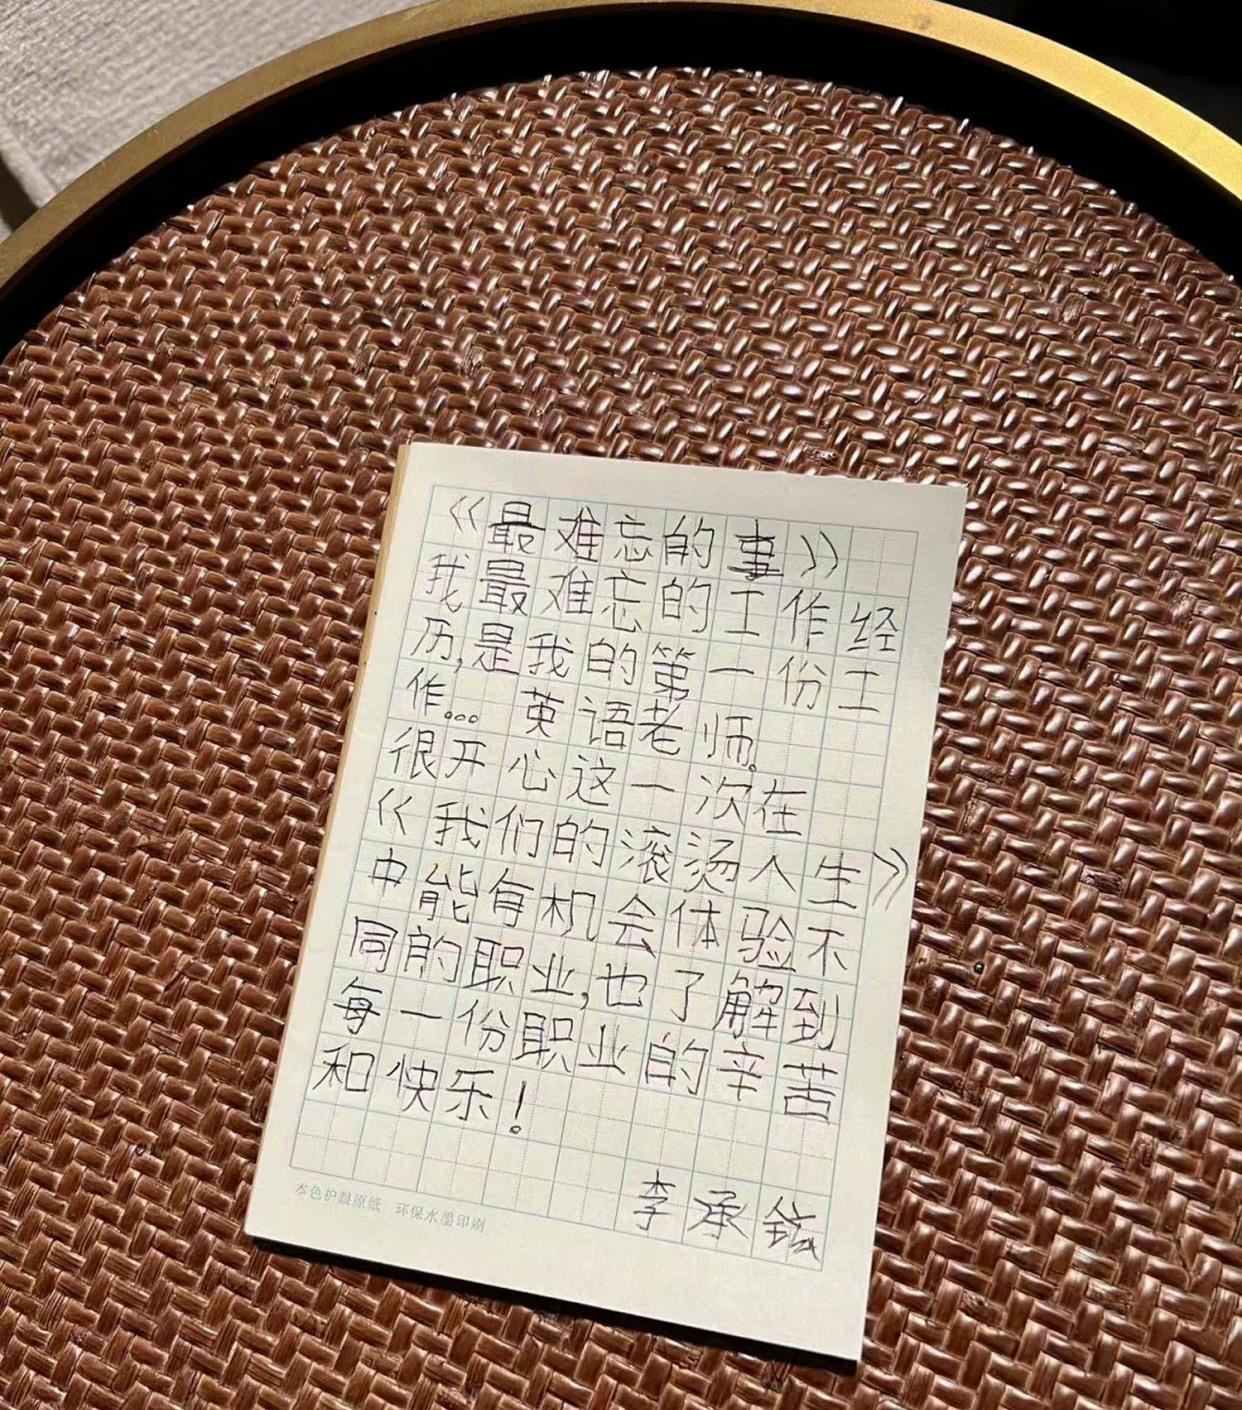 《最难忘的事》
我最难忘的工作经
历,是我的第一份工
作... 英语老师。
很开心这一次在
《我们的滚烫人生》
中能有机会体验不
同的职业,也了解到
每一份职业的辛苦
和快乐!
李承铉
本色护眼原纸 环保水墨印刷